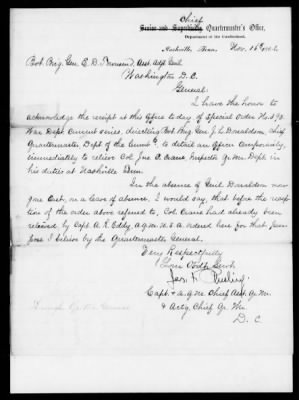 Chief
Senior and Supervising Quartermaster's Office,
Department of the Cumberland,
Nashville, Tenn. Nov. 16th 186
Bvt. Brig. Gen. E. D. Townsend, Asst. Adjt. Genl.
Washington D. C.
General:
I have the honor to
acknowledge the receipt at this Office today of Special Order No.
War Dept. current series, directing Bvt. Brig. Gen. J. L. Donaldson, Chief
Quartermaster Dept. of the Cumb'd, to detail an Officer temporarily,
immediately to relieve Col. Jno. C. Crane, Inspector Qr. Mr. Dept. in
his duties at Nashville Tenn.
In the absence of Genl. Donaldson now
gone East, on a leave of absence, I would say, that before the recep-
tion of the order above referred to, Col. Crane had already been
relieved by Capt. A. R. Eddy, A.Q.M. U.S.A. ordered here for that pur-
pose by the Quartermaster General.
Very Respectfully
Your Obdt. Servt.
Jas. F. Rusling
Capt. & A.Q.M. Chief Asst. Qr. Mr.
& Actg. Chief Qr. Mr.
D. C.